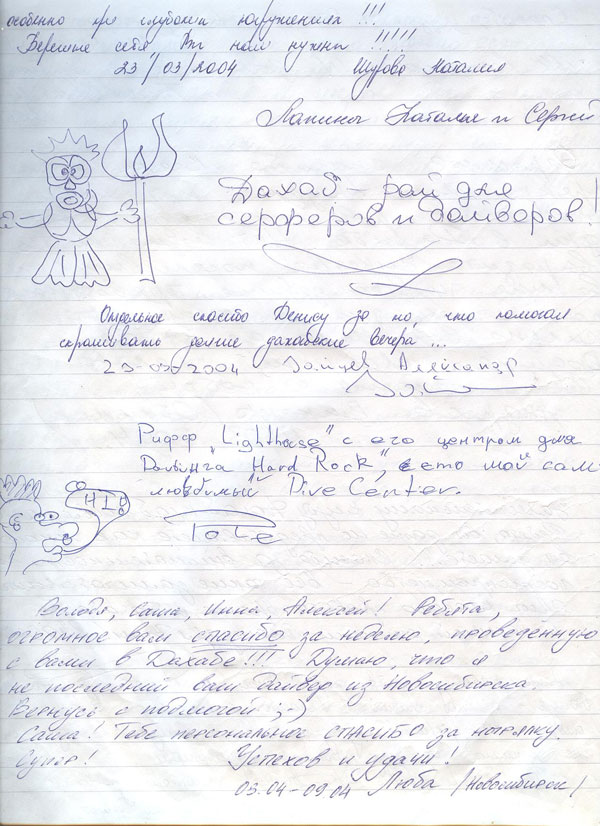 особенно при глубоких погружениях !!!
Берегите себя, Вы нам нужны !!!!!
23/03/2004 Щурова Наталия
Лапины Наталья и Сергей
Дахаб – рай для
серферов и дайверов!
Отдельное спасибо Денису за то, что помогал
скрашивать долгие дахабские вечера...
23-03-2004 Зайцев Александр
Рифф „Lighthouse" с его центром для
Дайвинга „Hard Rock", ето мой сам
любвимый Dive Center.
HI
Tote
Володя, Саша, Инна, Алексей! Ребята,
огромное вам спасибо за неделю, проведенную
с вами в Дахабе!!! Думаю, что я
не последний ваш дайвер из Новосибирска.
Вернусь с подмогой ;-)
Саша! Тебе персональное СПАСИБО за нырялку.
Супер! Успехов и удачи!
03.04-09.04 Люба /Новосибирск/